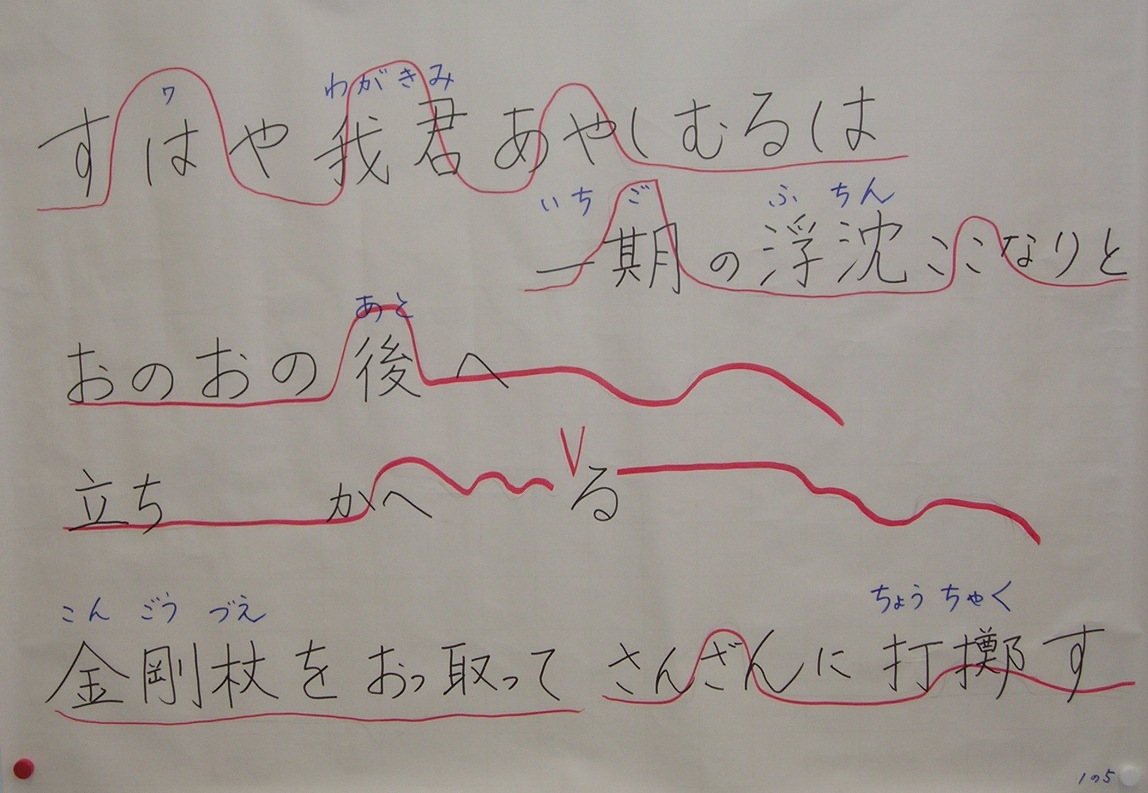 ワ わがきみ
すはや我君あやしむるは
いちご ふちん
一期の浮沈ここなりと
あと
おのおの後へ
立ち かへ る
こん ごう づえ ちょう ちゃく
金剛杖をおっ取って さんざんに打擲す
1の5